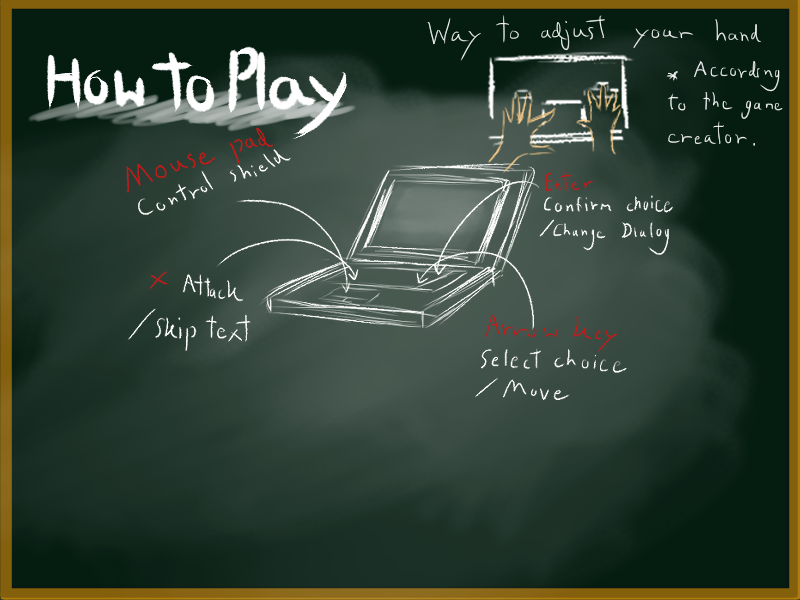 How to Play
Way to adjust your hand
* According
to the game
creator.
Mouse pad
Control shield
Enter
Confirm choice
/Change Dialog
X Attack
/Skip text
Arrow key
Select choice
/Move